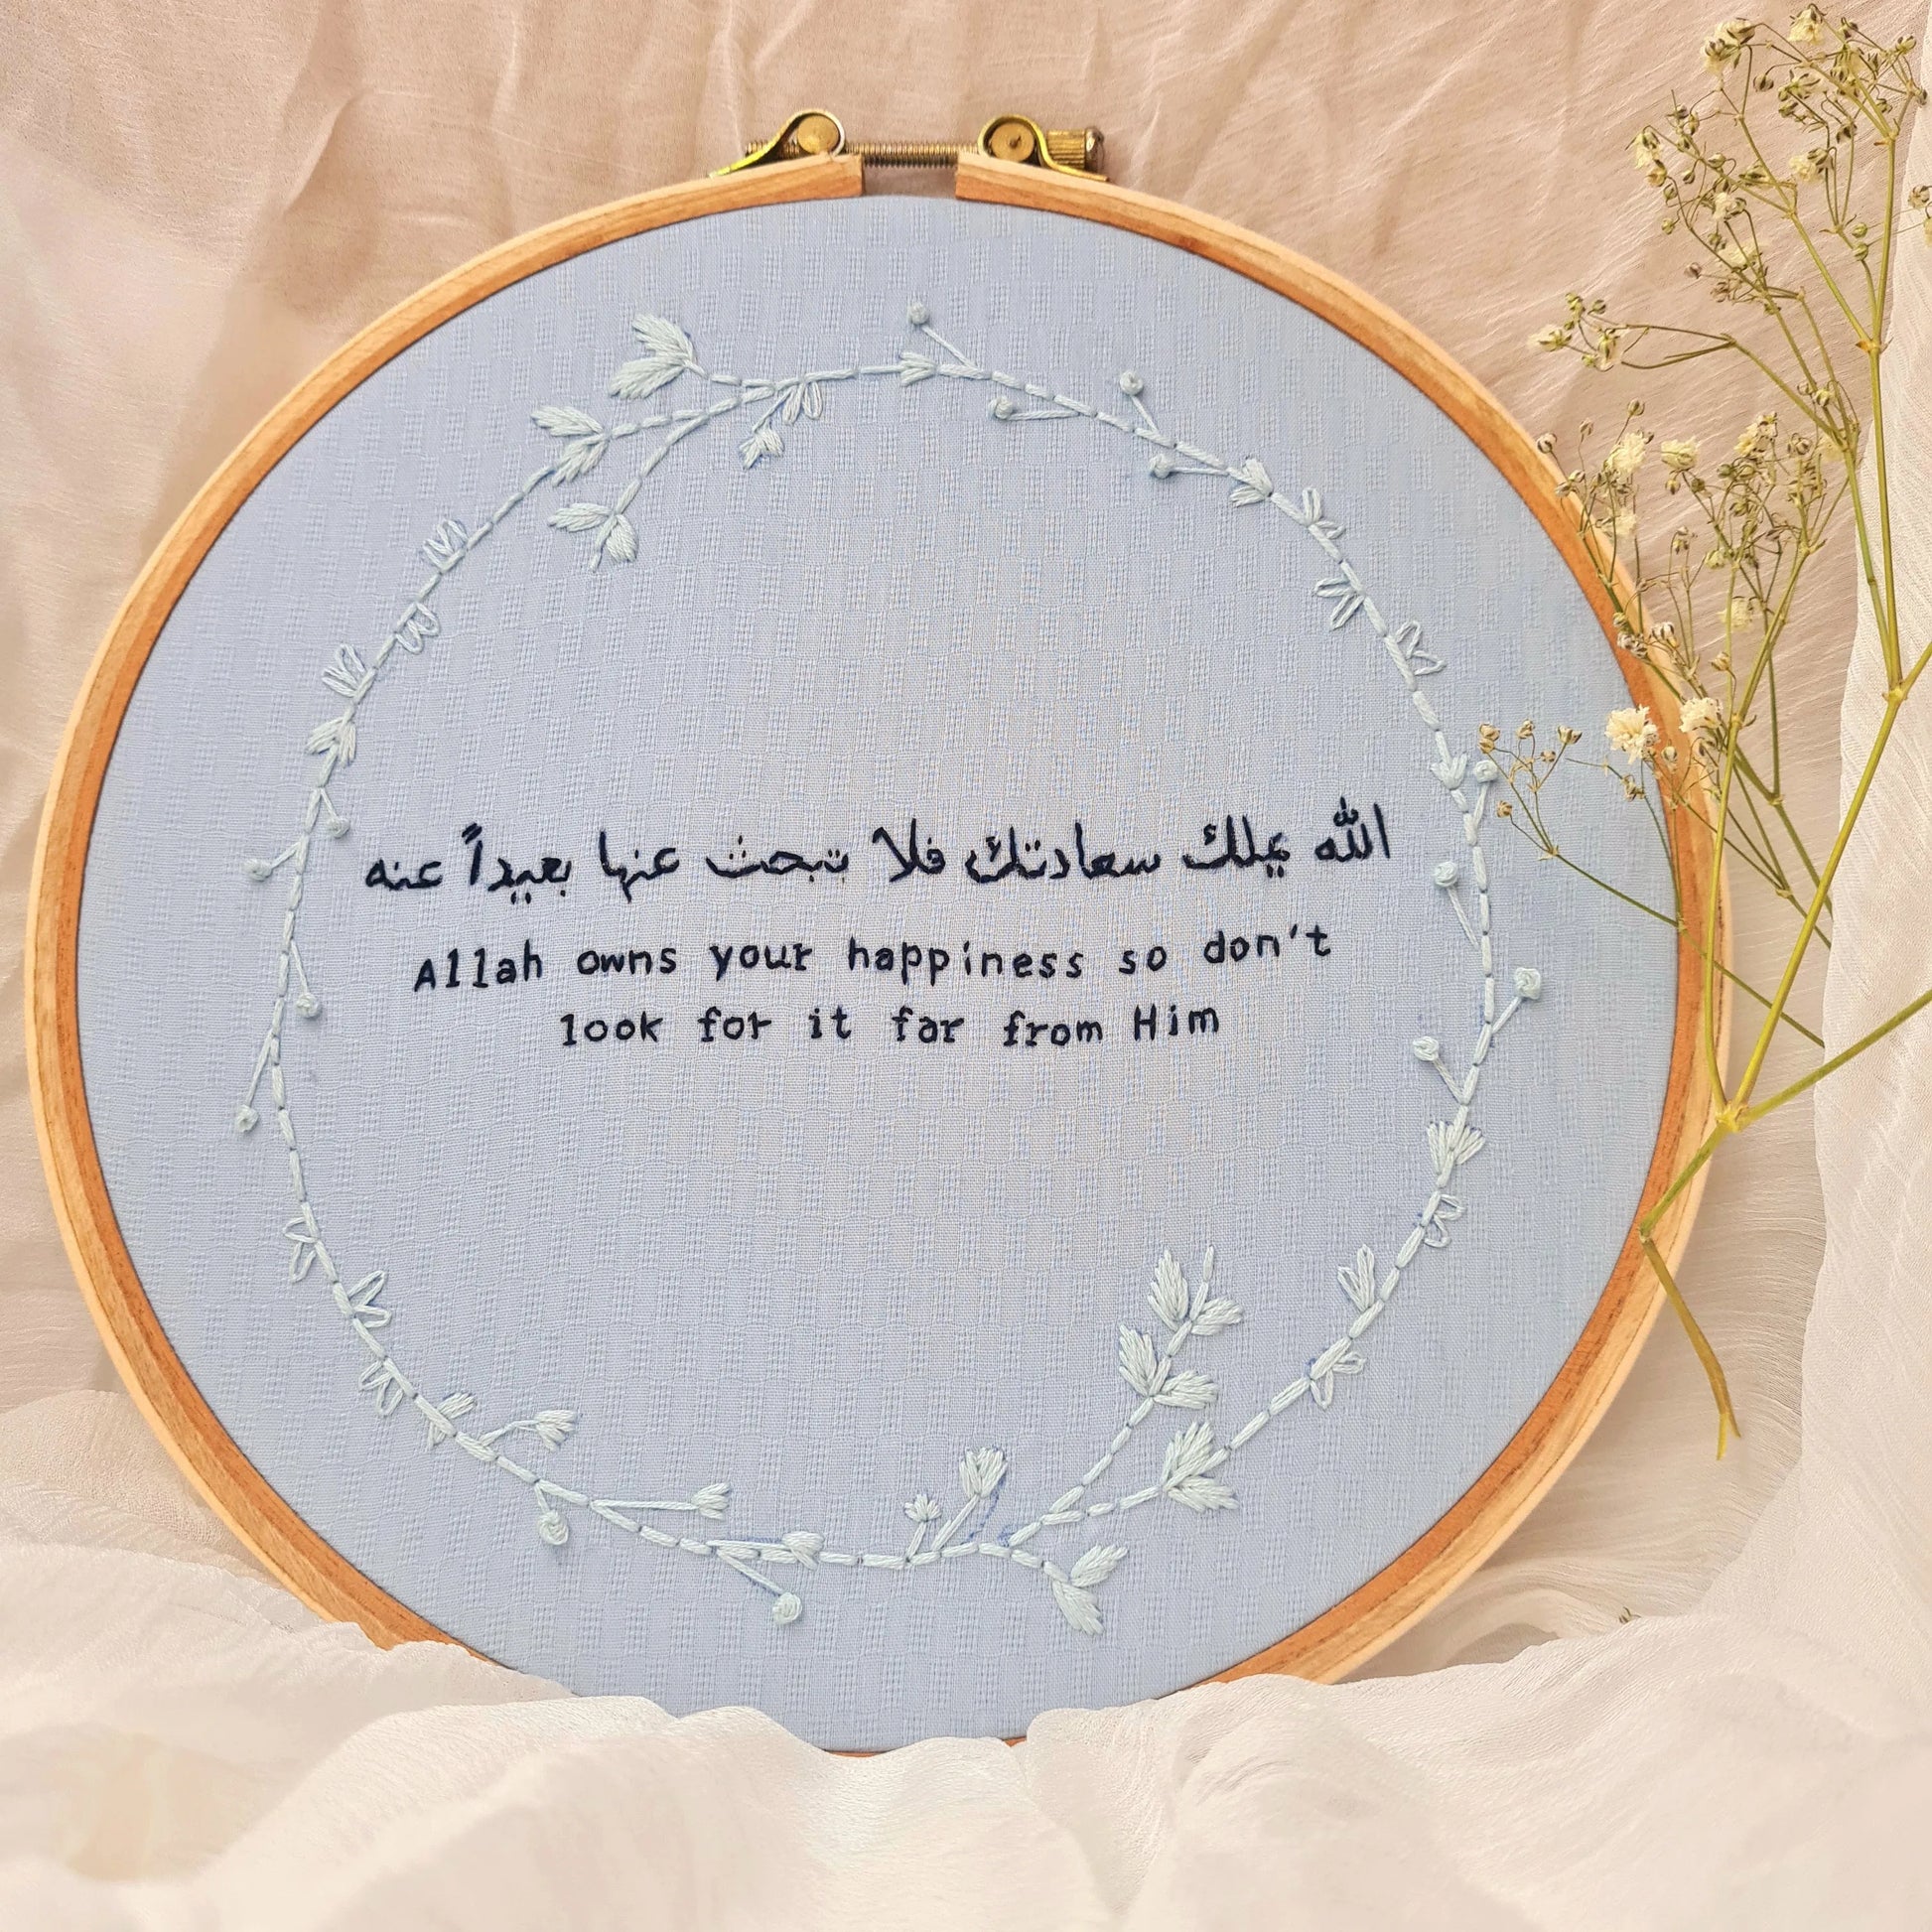 الله يملك سعادتك فلا تبحث عنها بعيداً عنه
Allah owns your happiness so don't
look for it far from Him